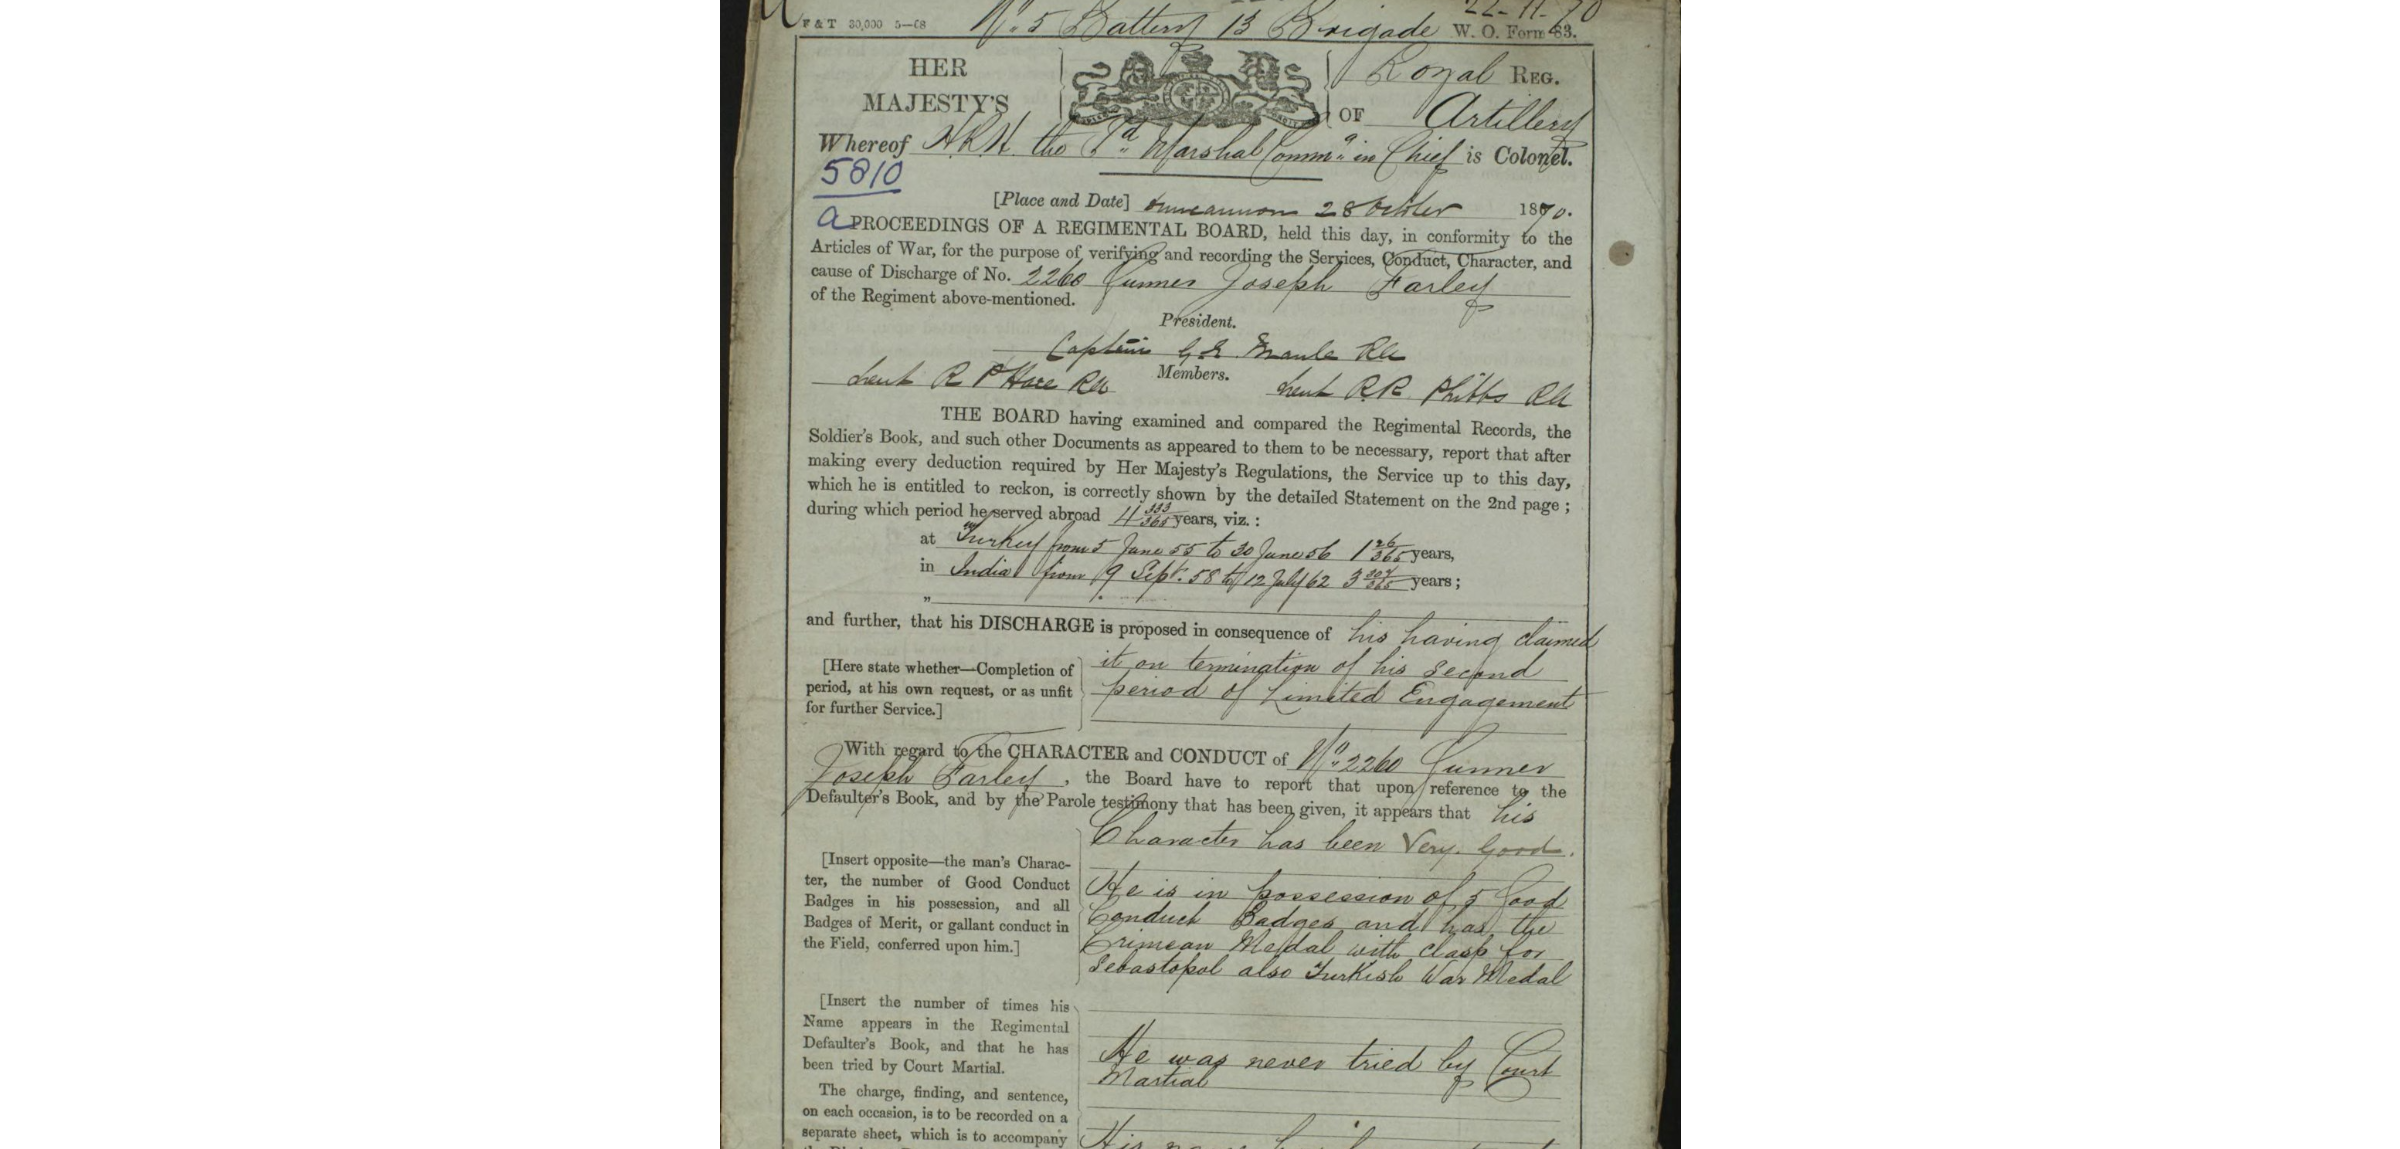 22-11-70
F & T 30,000 5—68 No. 5 Battery 13 Brigade W. O. Form 83.
HER MAJESTY'S Royal REG.
OF Artillery
Whereof H.R.H. the Fd. Marshal Commg. in Chief is Colonel.
5810
a
[Place and Date] Duncannon 28 October 1870.
PROCEEDINGS OF A REGIMENTAL BOARD, held this day, in conformity to the
Articles of War, for the purpose of verifying and recording the Services, Conduct, Character, and
cause of Discharge of No. 2260 Gunner Joseph Farley
of the Regiment above-mentioned.
President.
Captain G. E. Maule RA
Members.
Lieut R P Hare RA Lieut R.R. Phibbs RA
THE BOARD having examined and compared the Regimental Records, the
Soldier's Book, and such other Documents as appeared to them to be necessary, report that after
making every deduction required by Her Majesty's Regulations, the Service up to this day,
which he is entitled to reckon, is correctly shown by the detailed Statement on the 2nd page ;
during which period he served abroad 4 333/365 years, viz. :
at Turkey from 5 June 55 to 30 June 56 1 26/365 years,
in India from 9 Sept. 58 to 12 July 62 3 307/365 years ;
"
and further, that his DISCHARGE is proposed in consequence of his having claimed
it on termination of his second
period of Limited Engagement
[Here state whether—Completion of
period, at his own request, or as unfit
for further Service.]
With regard to the CHARACTER and CONDUCT of No. 2260 Gunner
Joseph Farley, the Board have to report that upon reference to the
Defaulter's Book, and by the Parole testimony that has been given, it appears that his
Character has been Very Good.
[Insert opposite—the man's Charac-
ter, the number of Good Conduct
Badges in his possession, and all
Badges of Merit, or gallant conduct in
the Field, conferred upon him.]
He is in possession of 5 Good
Conduct Badges and has the
Crimean Medal with clasp for
Sebastopol also Turkish War Medal
[Insert the number of times his
Name appears in the Regimental
Defaulter's Book, and that he has
been tried by Court Martial.
He was never tried by Court
Martial
The charge, finding, and sentence,
on each occasion, is to be recorded on a
separate sheet, which is to accompany
His